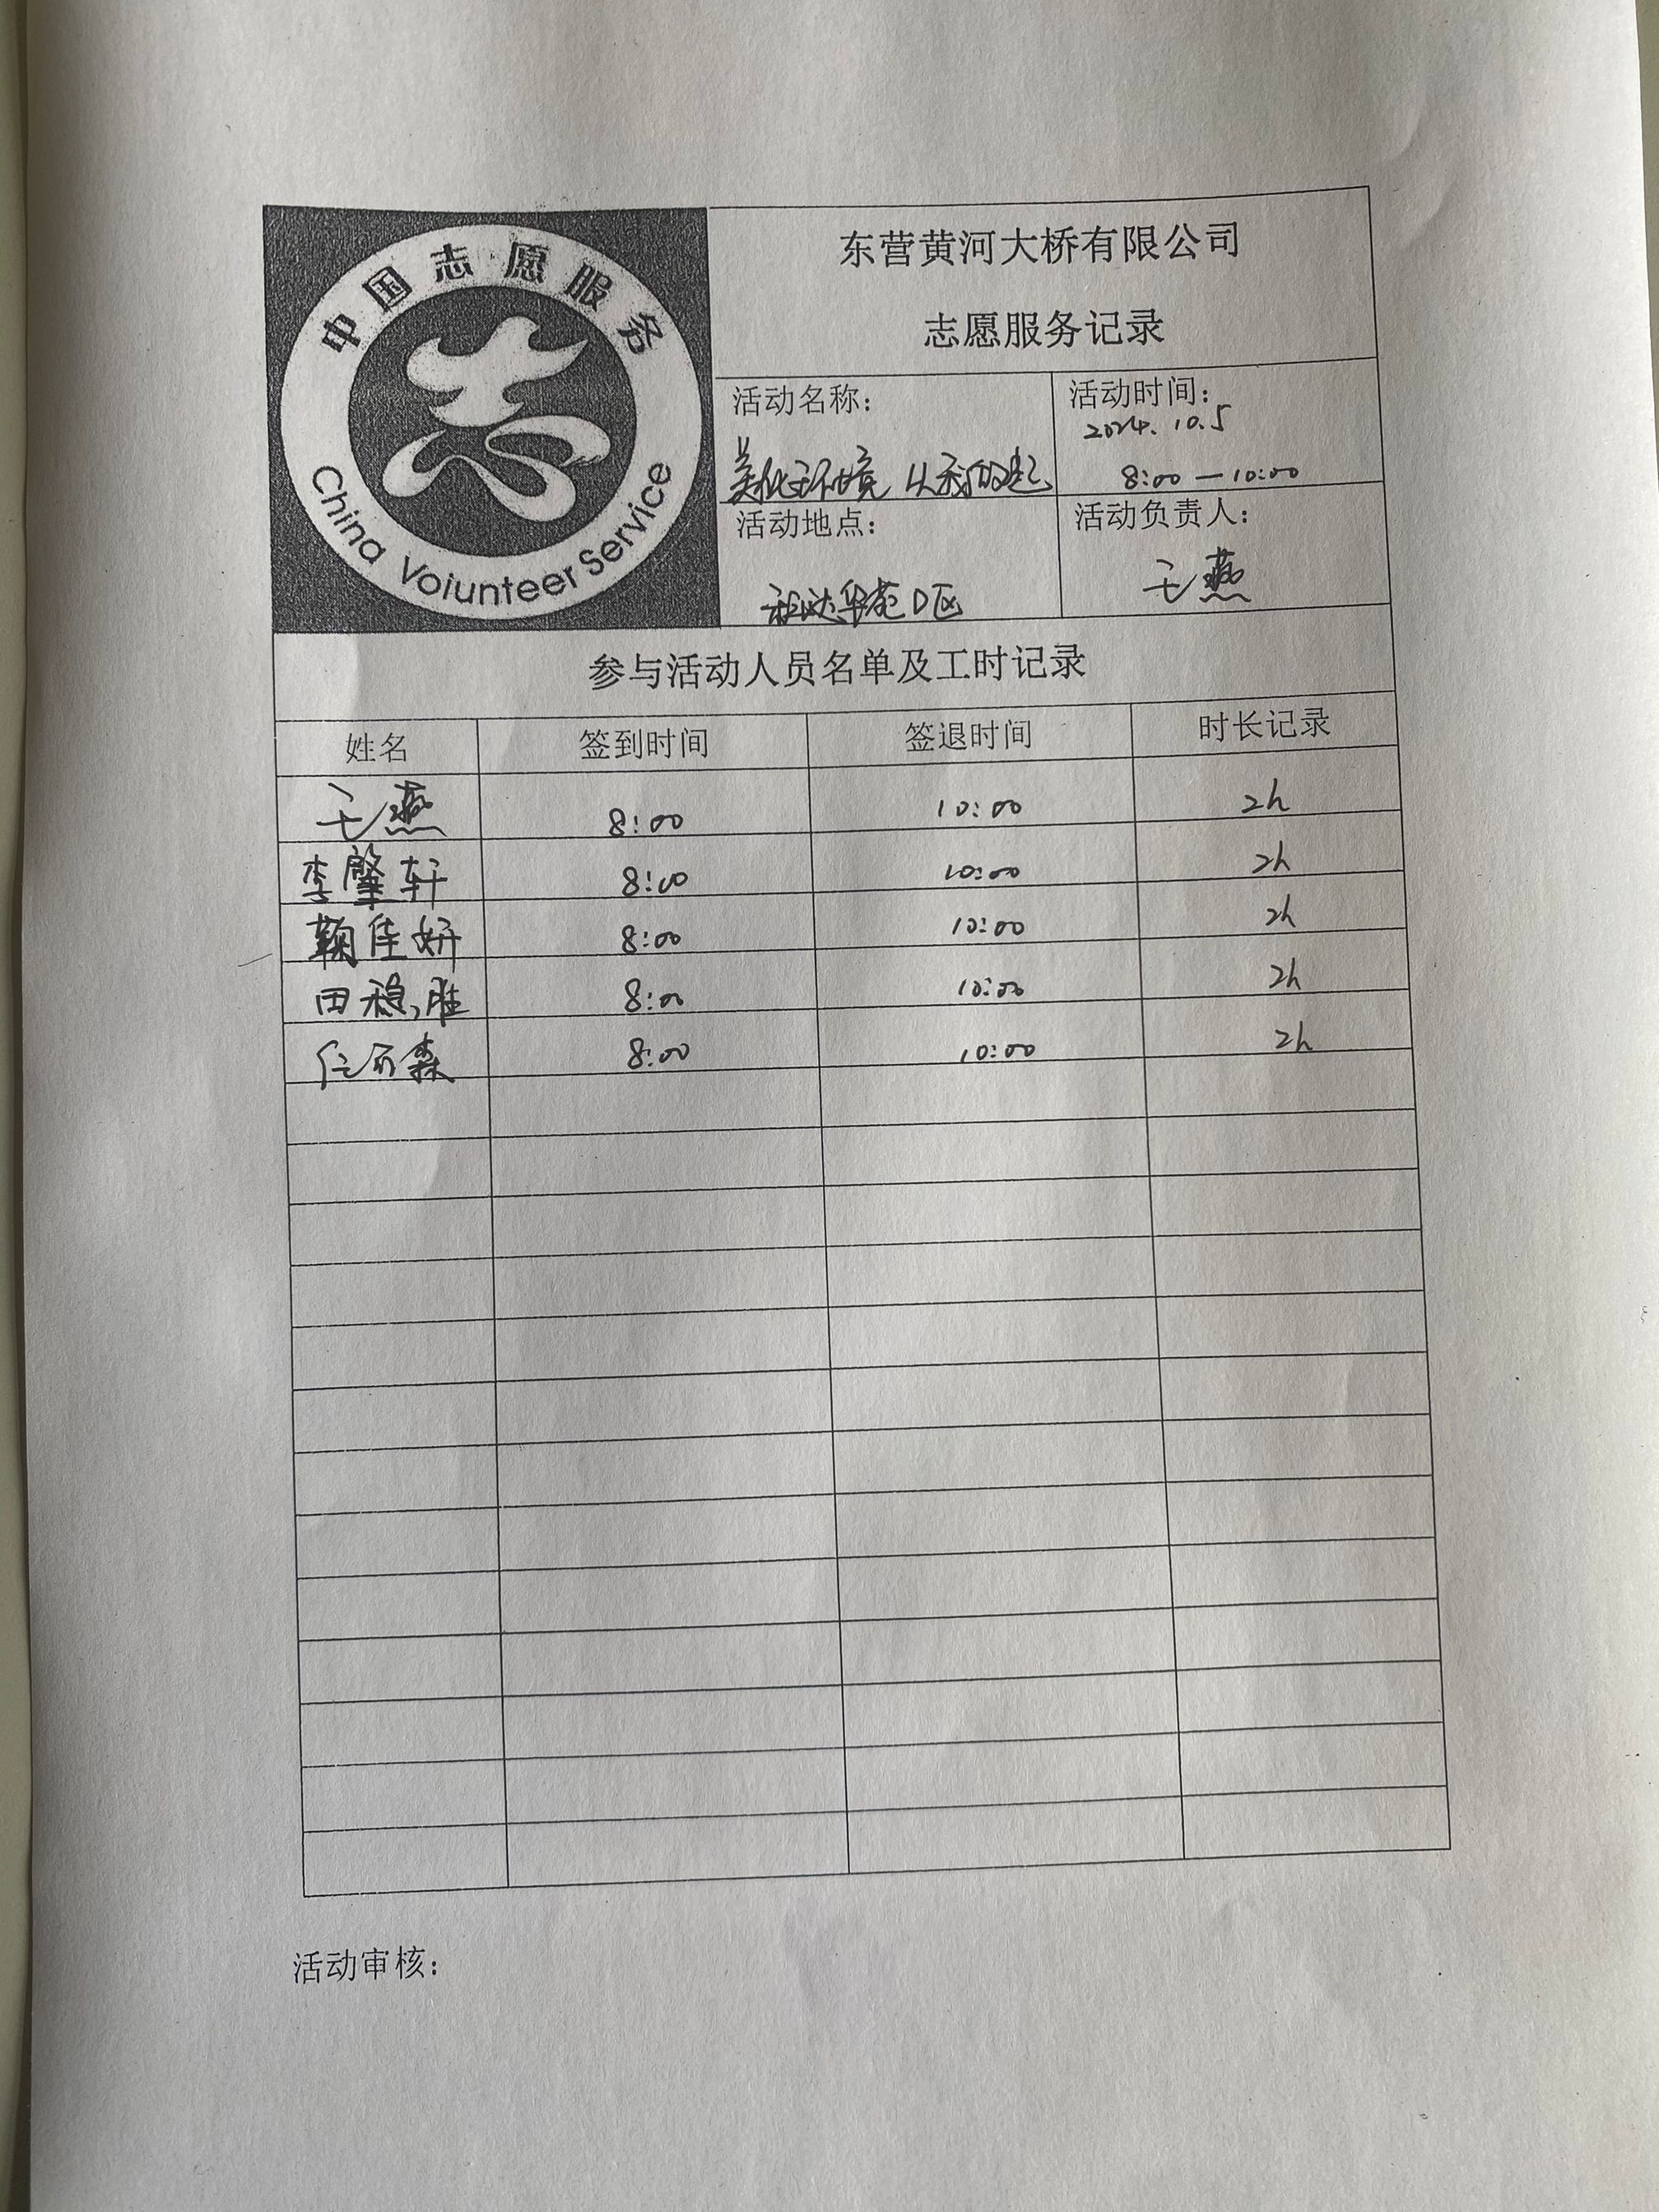 中国志愿服务
China Volunteer Service
东营黄河大桥有限公司
志愿服务记录
活动名称：
美化环境 从我做起
活动时间：
2024.10.5
8:00—10:00
活动地点：
华苑D区
活动负责人：
王燕
参与活动人员名单及工时记录
姓名 签到时间 签退时间 时长记录
王燕 8:00 10:00 2h
李肇轩 8:00 10:00 2h
鞠佳妍 8:00 10:00 2h
田稳胜 8:00 10:00 2h
任森 8:00 10:00 2h
活动审核：